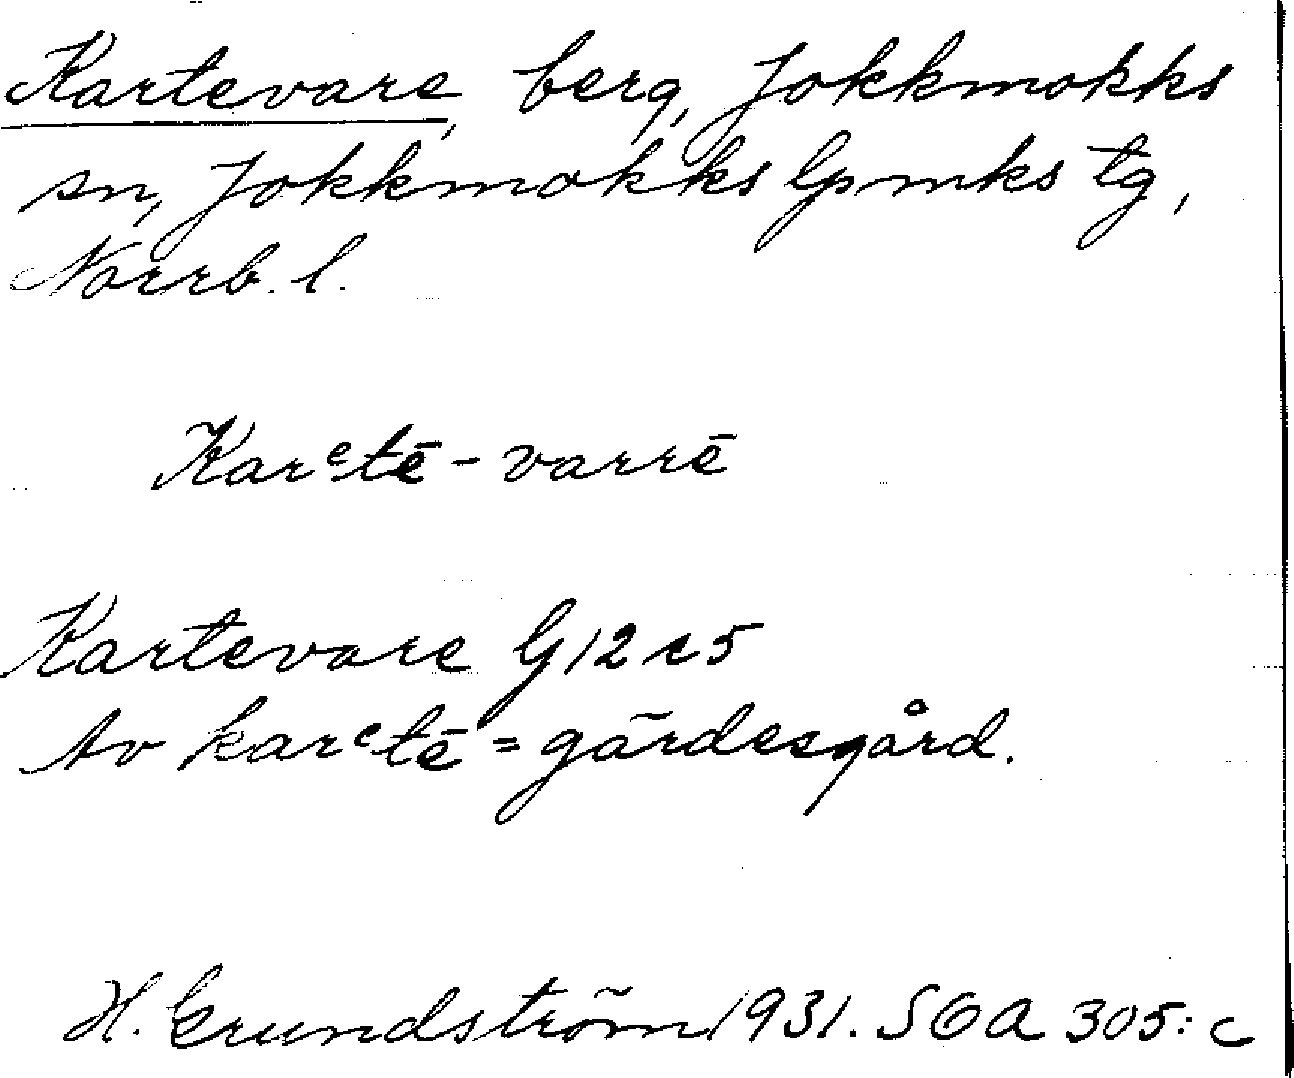 Kartevare, berg, Jokkmokks
sn, Jokkmokks lpmks tg,
Norrb. l.
Karᶜtē-varrē
Kartevare G12c5
Av karᶜtē = gärdesgård.
H. Grundström 1931. SOA 305:c